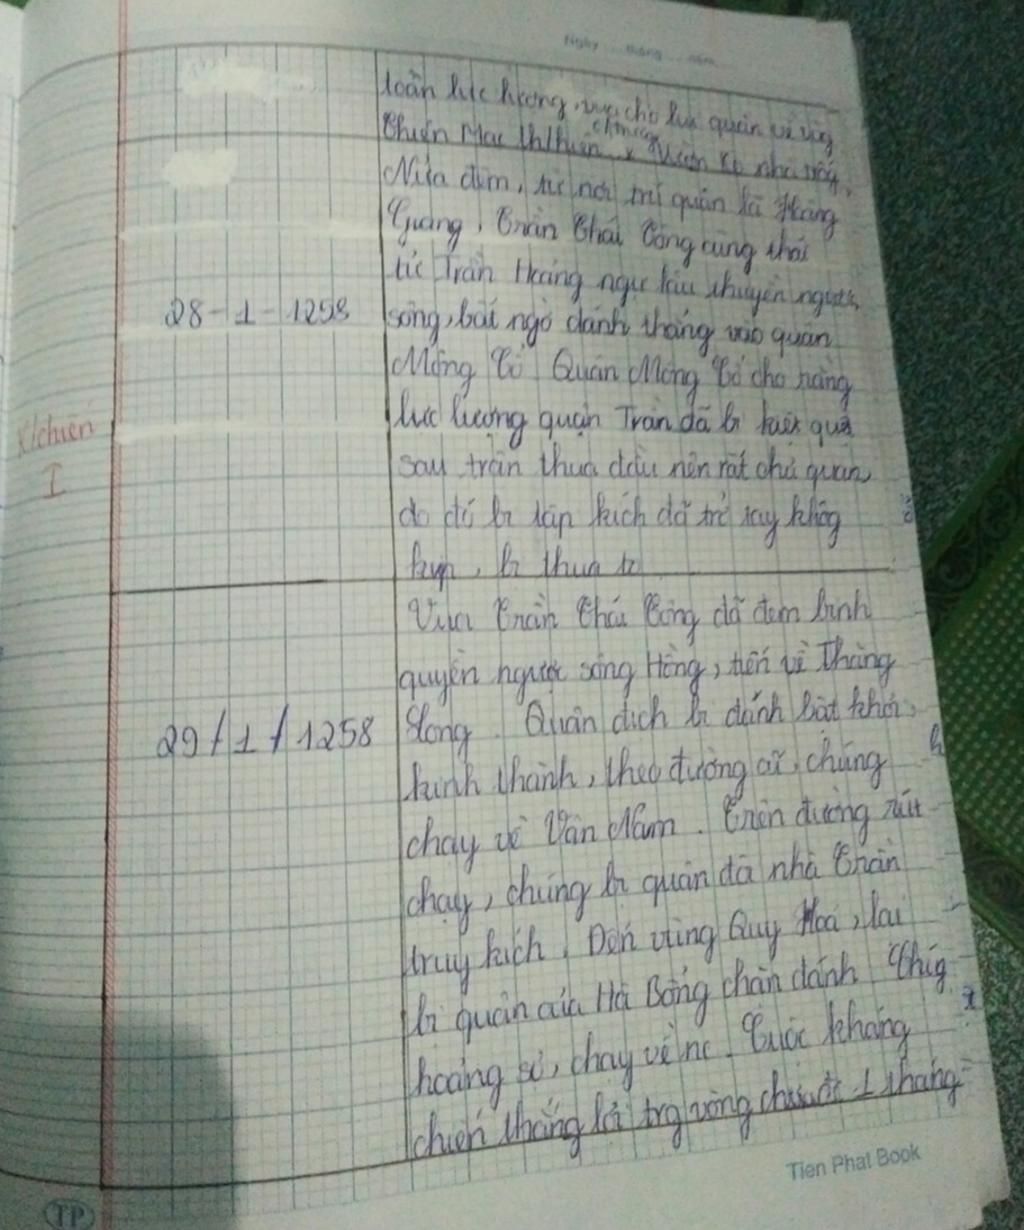 Ngày tháng năm
toàn lực lượng, vua cho lui quân về vùng
Thiên Mạc
Nửa đêm, từ nơi trú quân là Hoàng
Giang, Trần Thái Tông cùng thái
tử Trần Hoảng ngự lâu thuyền ngược
28-1-1258
sông, bất ngờ đánh thẳng vào quân
Mông Cổ. Quân Mông Cổ cho rằng
lực lượng quân Trần đã bị kiệt quệ
K/chiến
sau trận thua đầu nên rất chủ quan,
I
do đó bị tập kích đã trở tay khôg
kịp, bị thua to
Vua Trần Thái Tông đã đem binh
quyền ngược sông Hồng, tiến về Thăng
29/1/1258
Long. Quân địch bị đánh bật khỏi
kinh thành, theo đường cũ, chúng
chạy về Vân Nam. Trên đường rút
chạy, chúng bị quân đã nhà Trần
truy kích. Đến vùng Quy Hoá, lại
bị quân của Hà Bổng chặn đánh. Chúg
hoảng sợ, chạy về nc. Cuộc kháng
chiến thắng lợi trg vòng chưa đc 1 tháng
Tien Phat Book
TP